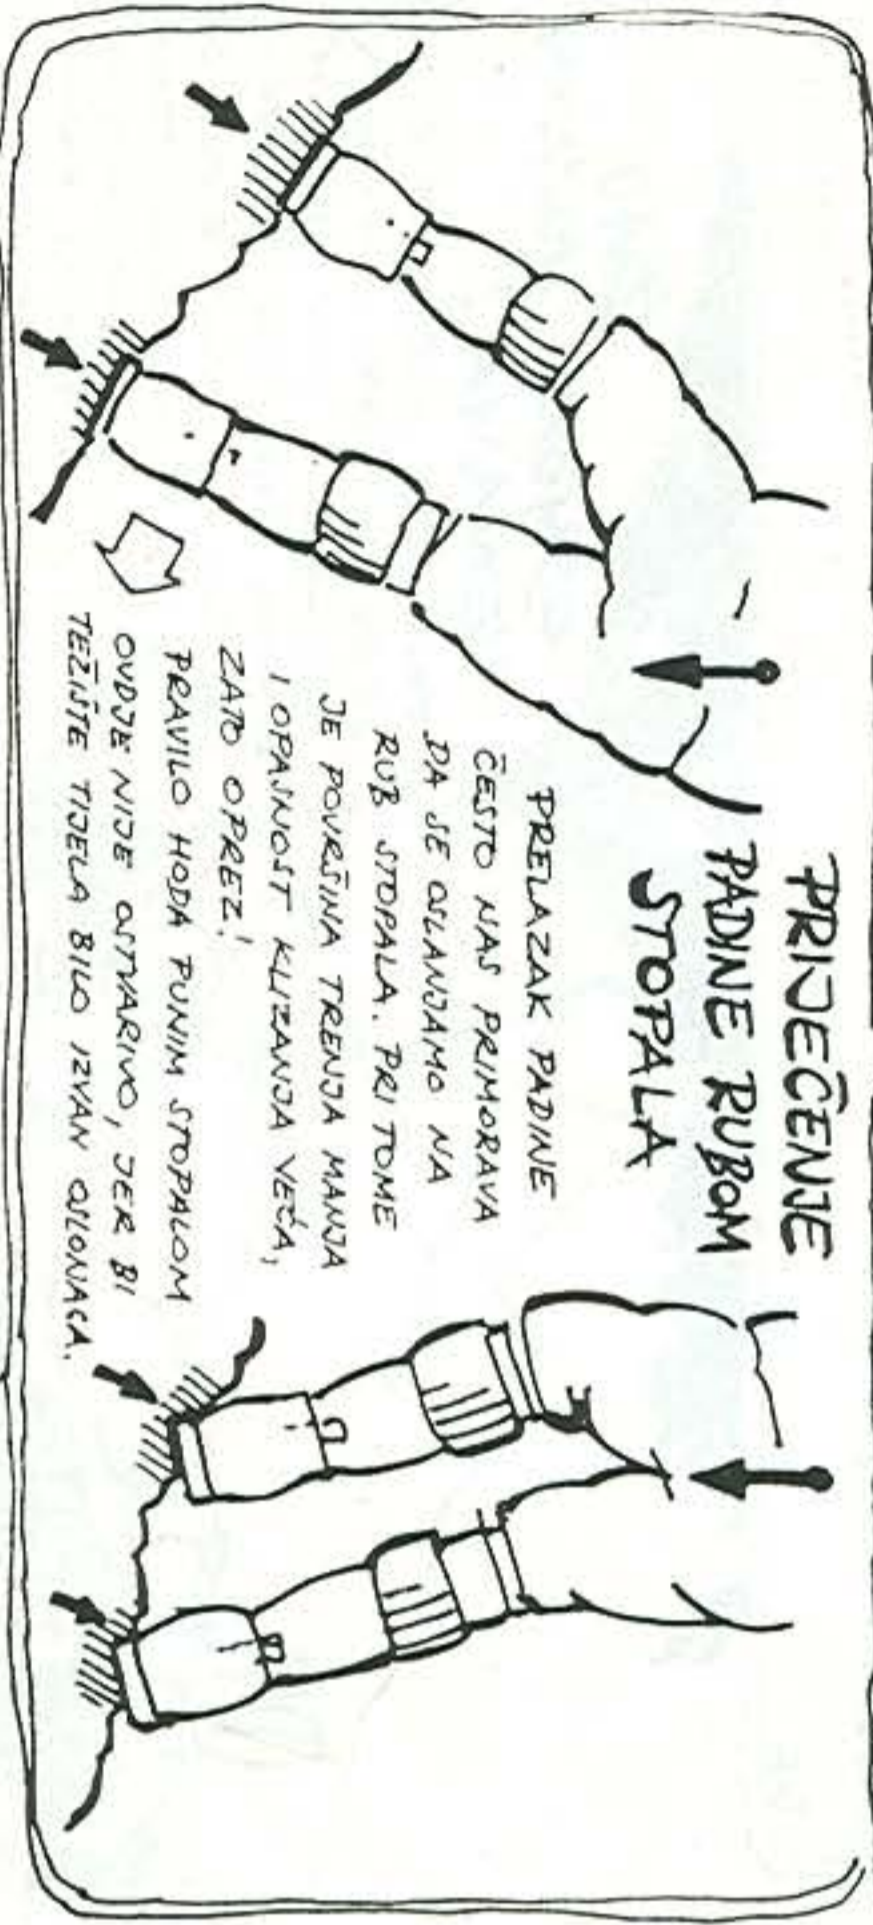 PRIJEČENJE
PADINE RUBOM
STOPALA
PRELAZAK PADINE
ČESTO NAS PRIMORAVA
DA SE OSLANJAMO NA
RUB STOPALA. PRI TOME
JE POVRŠINA TRENJA MANJA
I OPASNOST KLIZANJA VEĆA,
ZATO OPREZ!
PRAVILO HODA PUNIM STOPALOM
OVDJE NIJE OSTVARIVO, JER BI
TEŽIŠTE TIJELA BILO IZVAN OSLONACA.